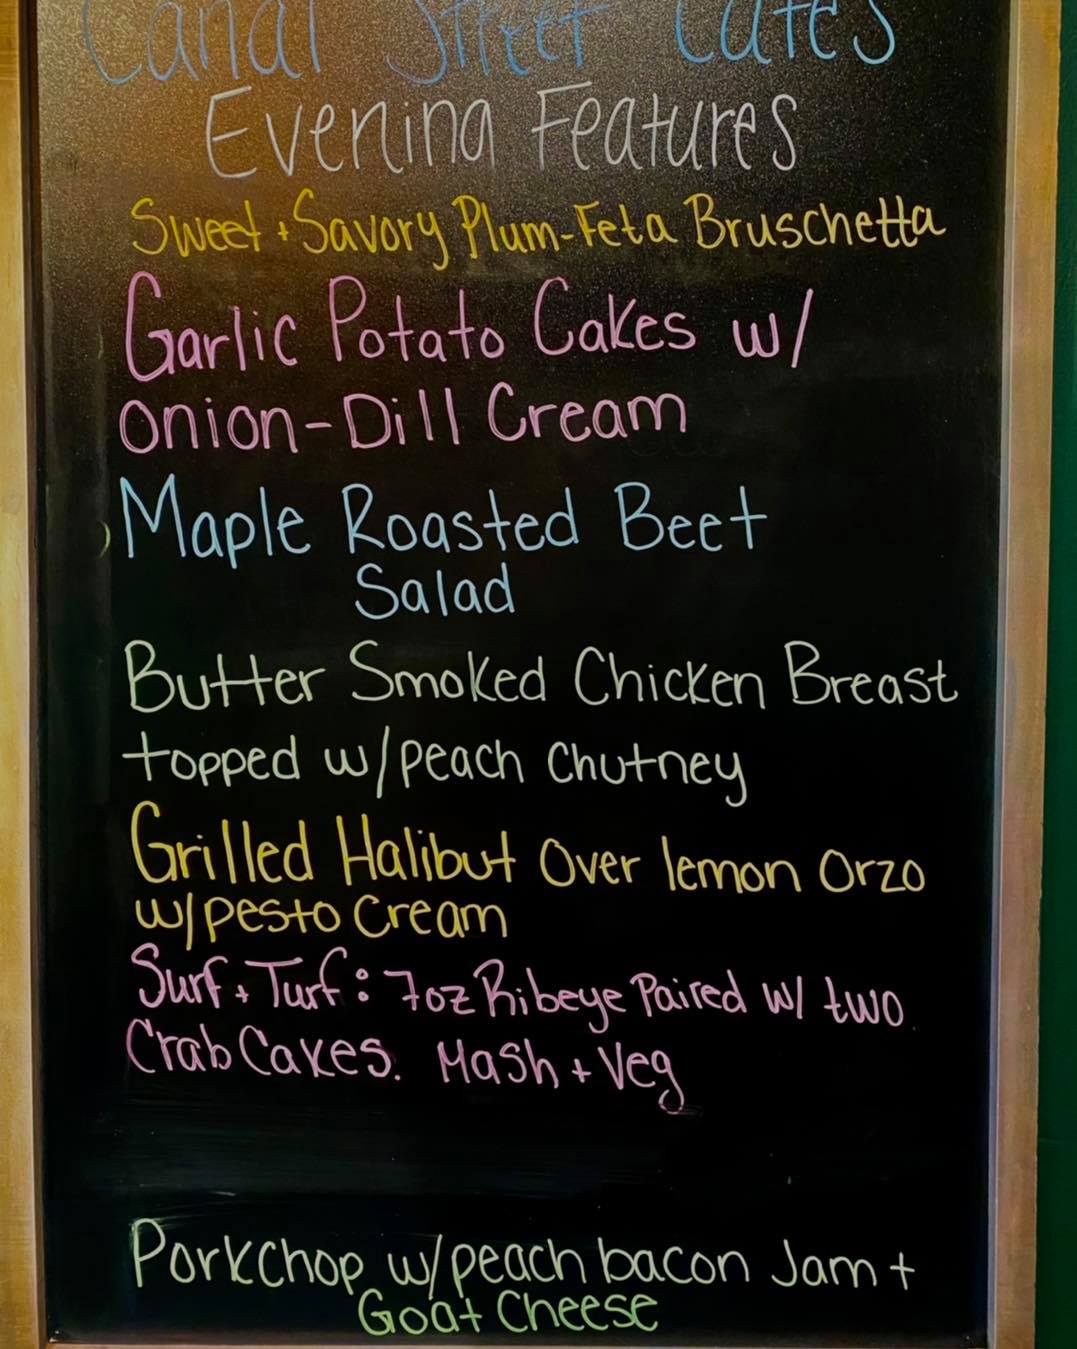 Canal Street Cafe's
Evening Features
Sweet + Savory Plum-Feta Bruschetta
Garlic Potato Cakes w/
Onion-Dill Cream
Maple Roasted Beet
Salad
Butter Smoked Chicken Breast
topped w/peach Chutney
Grilled Halibut Over lemon Orzo
w/pesto Cream
Surf + Turf: 7oz Ribeye Paired w/ two
Crab Cakes. Mash + Veg
Porkchop w/peach bacon Jam +
Goat Cheese